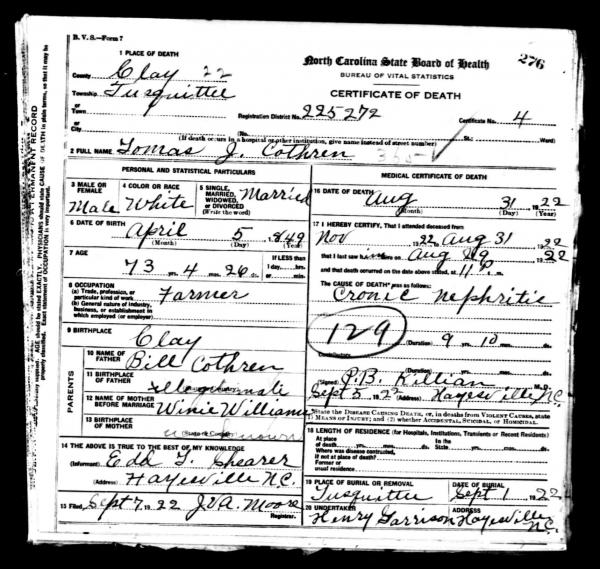 B. V. S.—Form 7
1 PLACE OF DEATH
County Clay 22
Township Tusquittee
or
Town
or
City
North Carolina State Board of Health 276
BUREAU OF VITAL STATISTICS
CERTIFICATE OF DEATH
Registration District No. 225272 Certificate No. 4
(No. St.; Ward)
(If death occurs in a hospital or other institution, give name instead of street number)
2 FULL NAME Tomas J. Cothren
PERSONAL AND STATISTICAL PARTICULARS
3 MALE OR FEMALE Male
4 COLOR OR RACE White
5 SINGLE, MARRIED, WIDOWED, OR DIVORCED (Write the word) Married
6 DATE OF BIRTH April 5 1849
(Month) (Day) (Year)
7 AGE 73 yrs. 4 mos. 26 ds.
If LESS than 1 day, hrs. or min.
8 OCCUPATION
(a) Trade, profession, or particular kind of work Farmer
(b) General nature of industry, business, or establishment in which employed (or employer)
9 BIRTHPLACE Clay
PARENTS
10 NAME OF FATHER Bill Cothren
11 BIRTHPLACE OF FATHER
12 NAME OF MOTHER BEFORE MARRIAGE Winie Williams
13 BIRTHPLACE OF MOTHER
14 THE ABOVE IS TRUE TO THE BEST OF MY KNOWLEDGE
(Informant) Edd T. Shearer
(Address) Hayesville N.C.
15 Filed, Sept 7, 1922 J.V.A. Moore
Registrar.
MEDICAL CERTIFICATE OF DEATH
16 DATE OF DEATH Aug 31 1922
(Month) (Day) (Year)
17 I HEREBY CERTIFY, That I attended deceased from
Nov 1922, Aug 31 1922
that I last saw him alive on Aug 29 1922
and that death occurred on the date above stated, at 11 P
The CAUSE OF DEATH* was as follows:
Cronic Nephritic
129
(Duration) 9 yrs. 10 mos.
Contributory
(Duration) yrs. mos. ds.
(Signed) P.B. Killian M.D.
Sept 5, 192 (Address) Hayesville N.C.
*State the DISEASE CAUSING DEATH, or, in deaths from VIOLENT CAUSES, state
1) MEANS OF INJURY; and (2) whether ACCIDENTAL, SUICIDAL, or HOMICIDAL.
18 LENGTH OF RESIDENCE (for Hospitals, Institutions, Transients or Recent Residents)
At place of death yrs. mos. ds. In the State yrs. mos. ds.
Where was disease contracted,
if not at place of death?
Former or
usual residence
19 PLACE OF BURIAL OR REMOVAL Tusquittee
DATE OF BURIAL Sept 1 1922
20 UNDERTAKER Henry Garrison
ADDRESS Hayesville N.C.